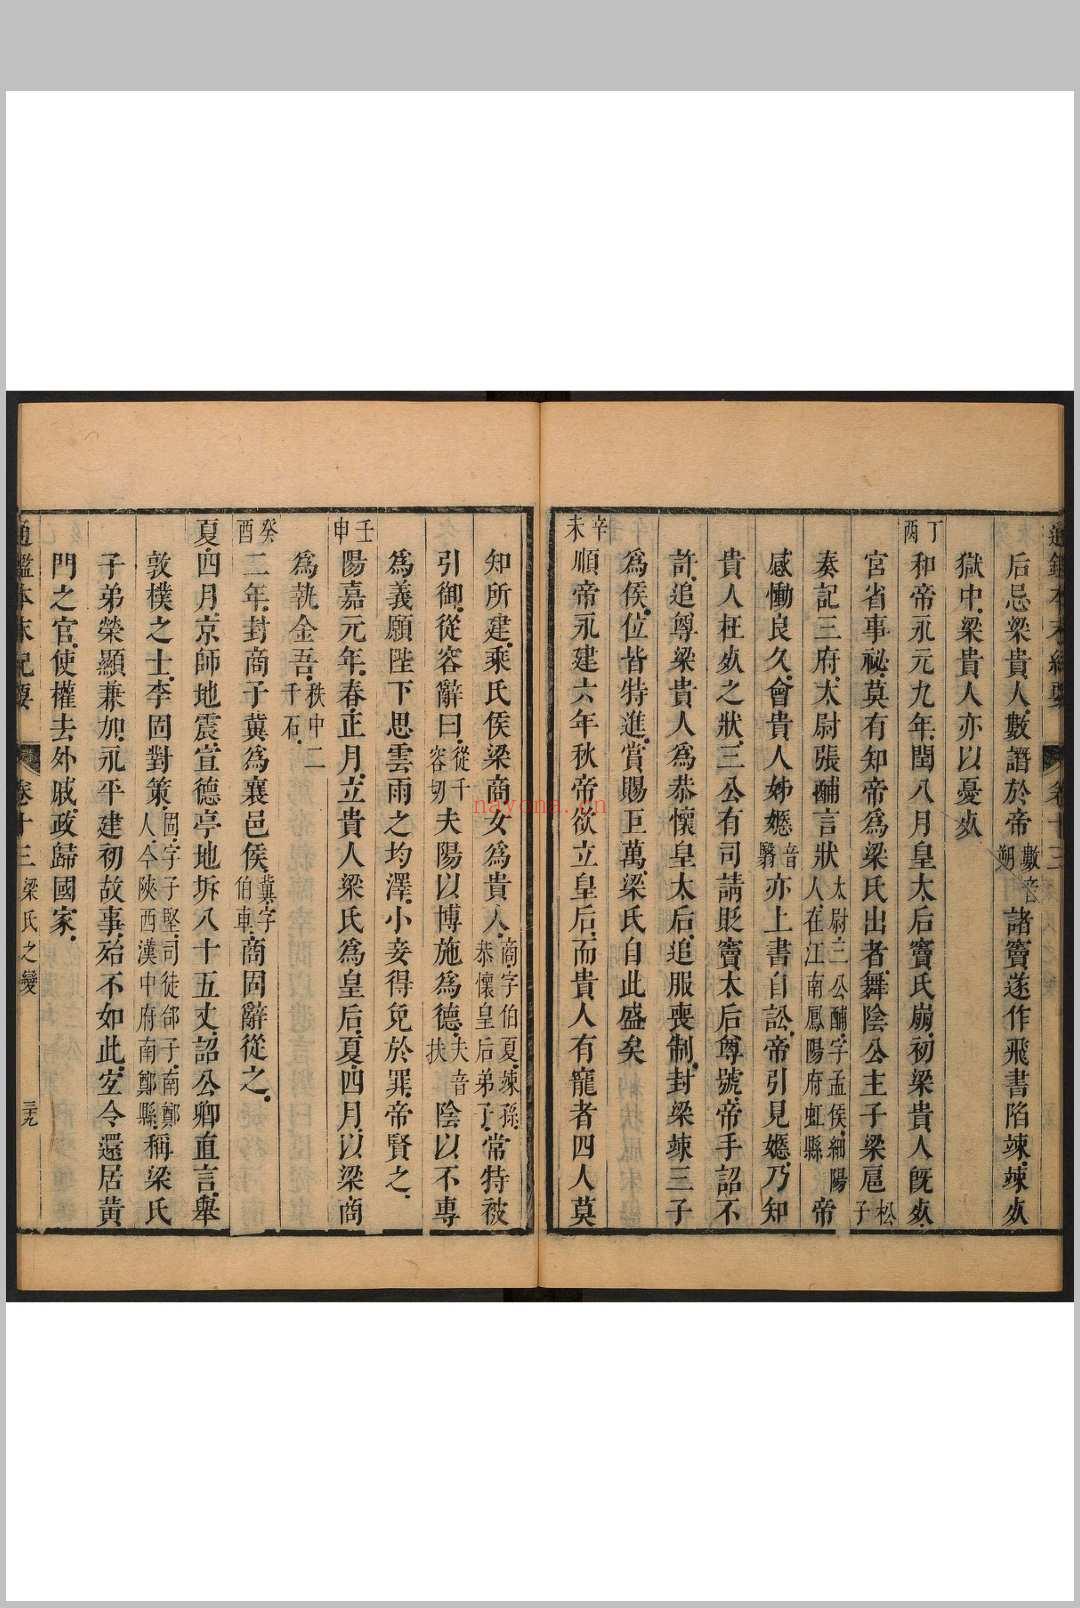 后忌梁貴人數譖於帝數音朔諸竇遂作飛書陷竦竦死
獄中梁貴人亦以憂死
丁酉和帝永元九年閏八月皇太后竇氏崩初梁貴人旣死
宮省事祕莫有知帝爲梁氏出者舞陰公主子梁扈松子
奏記三府太尉張酺言狀太尉三公酺字孟侯細陽人在江南鳳陽府虹縣帝
感慟良久會貴人姊嫕音翳亦上書自訟帝引見嫕乃知
貴人枉死之狀三公有司請貶竇太后尊號帝手詔不
許追尊梁貴人爲恭懷皇太后追服喪制封梁竦三子
爲侯位皆特進賞賜巨萬梁氏自此盛矣
辛未順帝永建六年秋帝欲立皇后而貴人有寵者四人莫
知所建乘氏侯梁商女爲貴人商字伯夏竦孫恭懷皇后弟子常特被
引御從容辭曰從千容切夫陽以博施爲德夫音扶陰以不專
爲義願陛下思雲雨之均澤小妾得免於罪帝賢之
壬申陽嘉元年春正月立貴人梁氏爲皇后夏四月以梁商
爲執金吾秩中二千石
癸酉二年封商子冀爲襄邑侯冀字伯車商固辭從之
夏四月京師地震宣德亭地坼八十五丈詔公卿直言舉
敦樸之士李固對策固字子堅司徒郃子南鄭人今陝西漢中府南鄭縣稱梁氏
子弟榮顯兼加永平建初故事殆不如此宜令還居黃
門之官使權去外戚政歸國家
通鑑本末紀要 卷十三 梁氏之變 三十九
nayona.cn